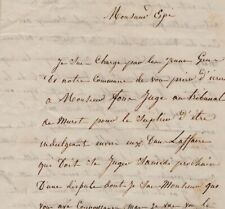 Monsieur
Je suis Chargé par les jeune Gens
de notre Commune de vous prier d'écrire
a Monsieur Juge au tribunal
de Muret pour le Suplier d'être
indulgeant envers eux dan Laffaire
que doit Se Juger Samedi prochain
D'une dispute dont Je sai Monsieur que
vous avé Connaissance